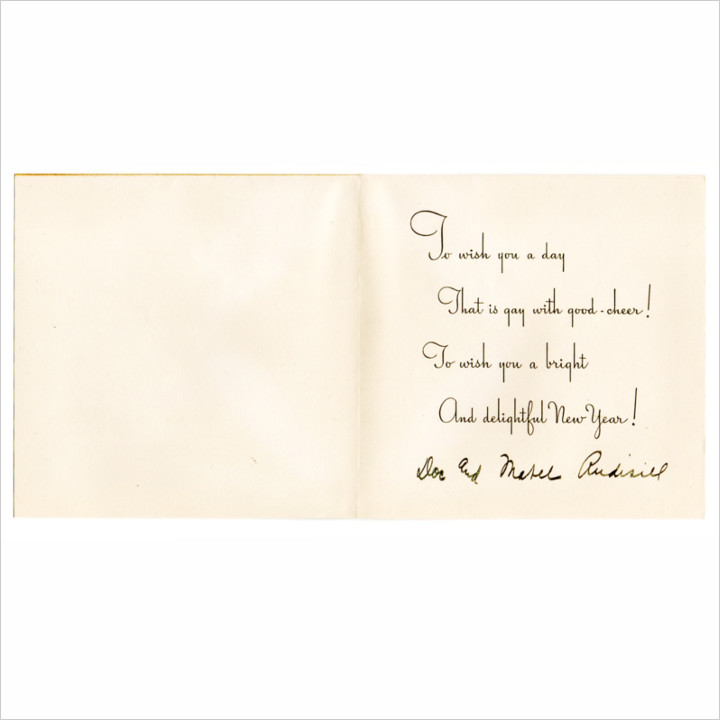 To wish you a day
That is gay with good-cheer!
To wish you a bright
And delightful New Year!
Doc and Mabel Rudisill